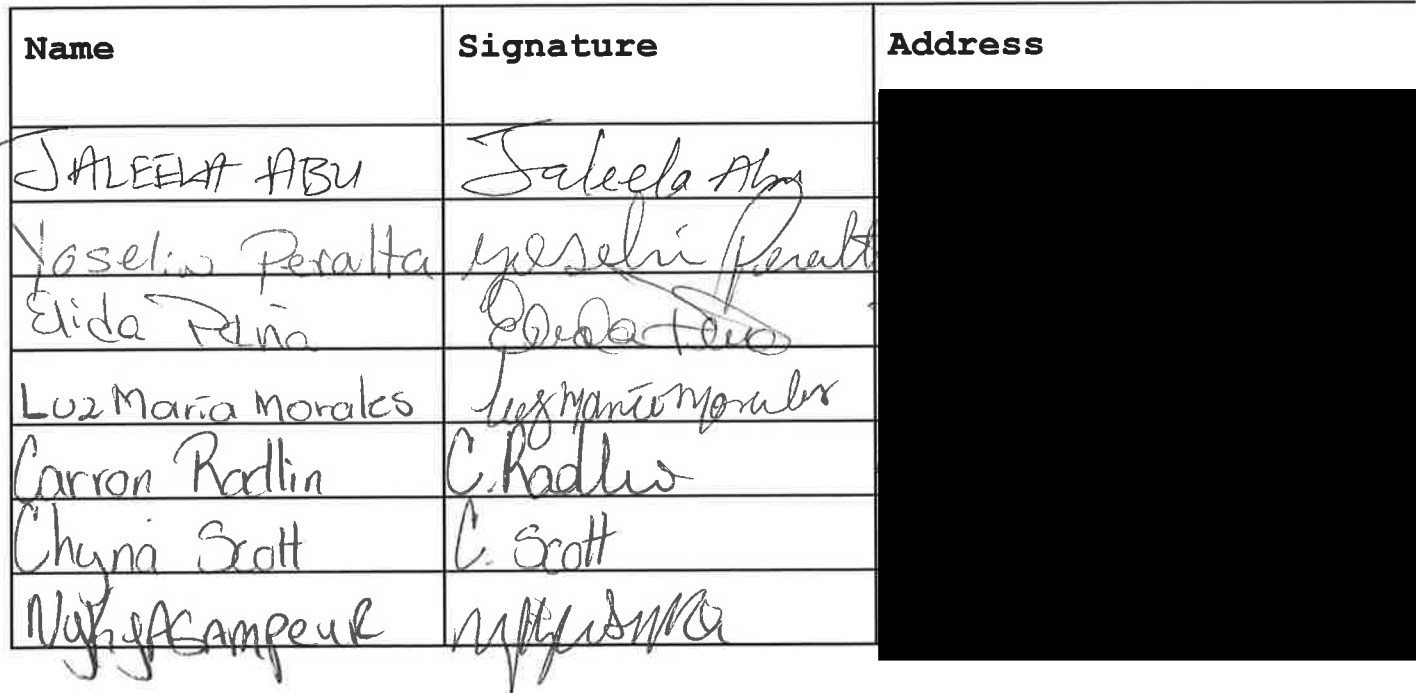 Name Signature Address
JALEELA ABU Jaleela Abu
Yoselin Peralta Yoselin Peralta
Elida Peña Elida Peña
Luz Maria Morales Luz Maria Morales
Carron Radlin C. Radlin
Chyna Scott C. Scott